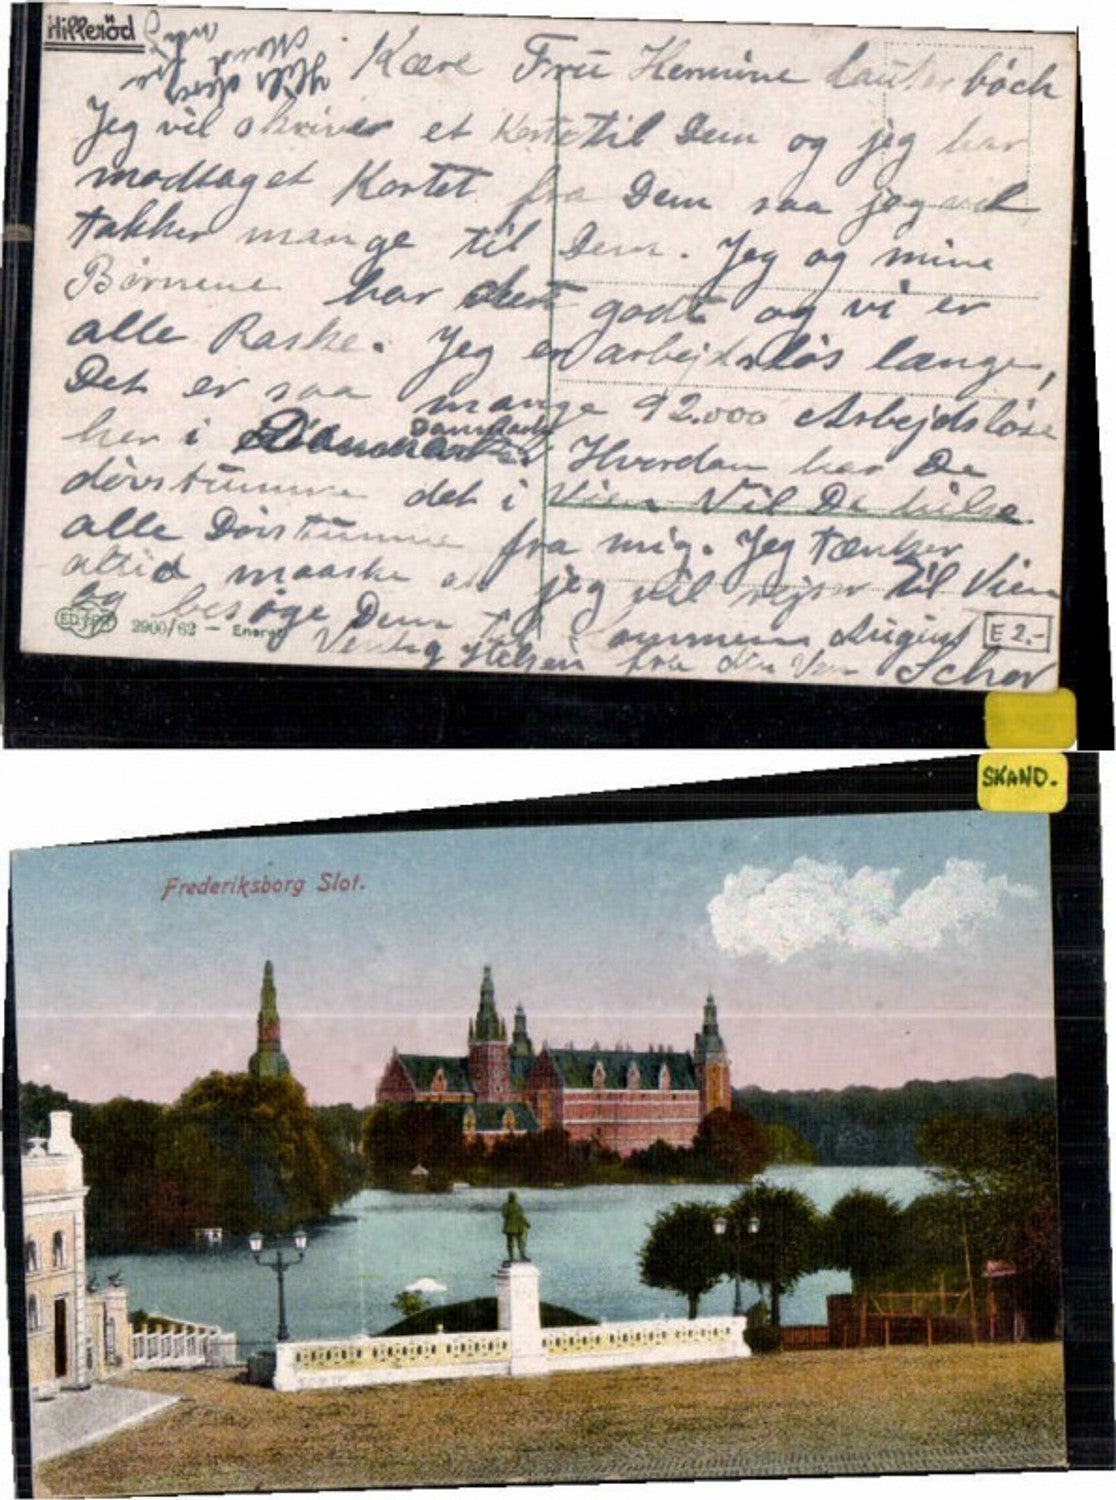 Hilleröd
Kære Frü Hermine Lauterböch
Jeg vil skriver et Kort til Dem og jeg har
modtaget Kortet fra Dem saa jeg vil
takker mange til Dem. Jeg og mine
Börnene har det godt og vi er
alle Raske. Jeg er arbejdslös længe,
Det er saa mange 92.000 Arbejdslöse
Danmark
her i Hvordan har De
dövstümme det i Wien Vil De hilse
alle Dövstümme fra mig. Jeg tænker
altid maaske at jeg vil rejser til Wien
og besöge Dem August
fra din Ven
2900/62 - Energy
E 2.-
SKAND.
Frederiksborg Slot.